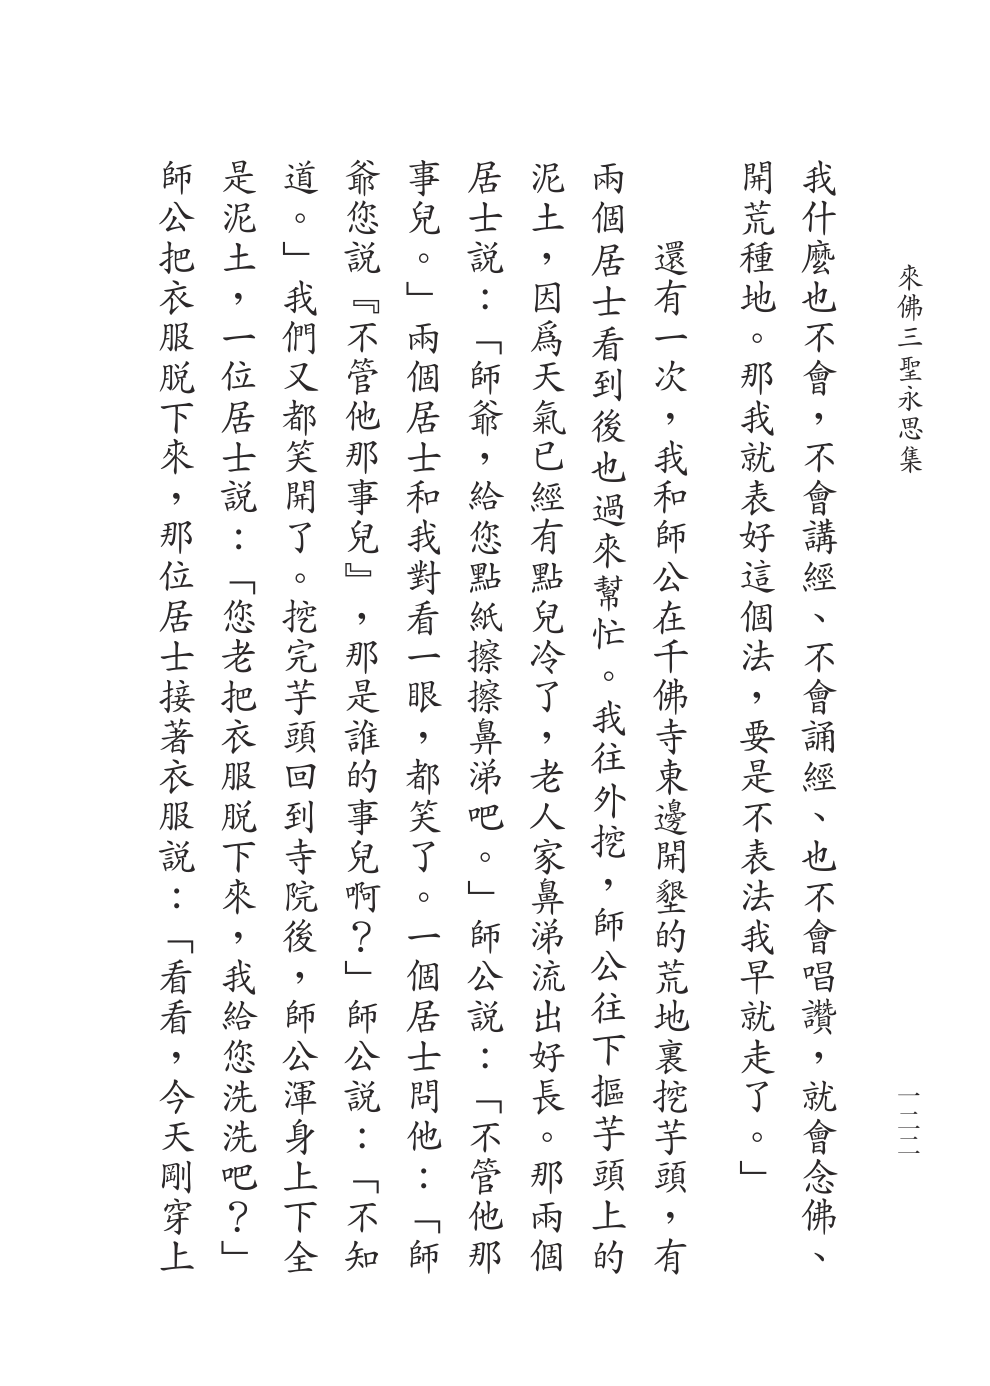 來佛三聖永思集
一二二
我什麼也不會，不會講經、不會誦經、也不會唱讚，就會念佛、
開荒種地。那我就表好這個法，要是不表法我早就走了。」
還有一次，我和師公在千佛寺東邊開墾的荒地裏挖芋頭，有
兩個居士看到後也過來幫忙。我往外挖，師公往下摳芋頭上的
泥土，因爲天氣已經有點兒冷了，老人家鼻涕流出好長。那兩個
居士説：「師爺，給您點紙擦擦鼻涕吧。」師公説：「不管他那
事兒。」兩個居士和我對看一眼，都笑了。一個居士問他：「師
爺您説『不管他那事兒』，那是誰的事兒啊？」師公説：「不知
道。」我們又都笑開了。挖完芋頭回到寺院後，師公渾身上下全
是泥土，一位居士説：「您老把衣服脱下來，我給您洗洗吧？」
師公把衣服脱下來，那位居士接著衣服説：「看看，今天剛穿上